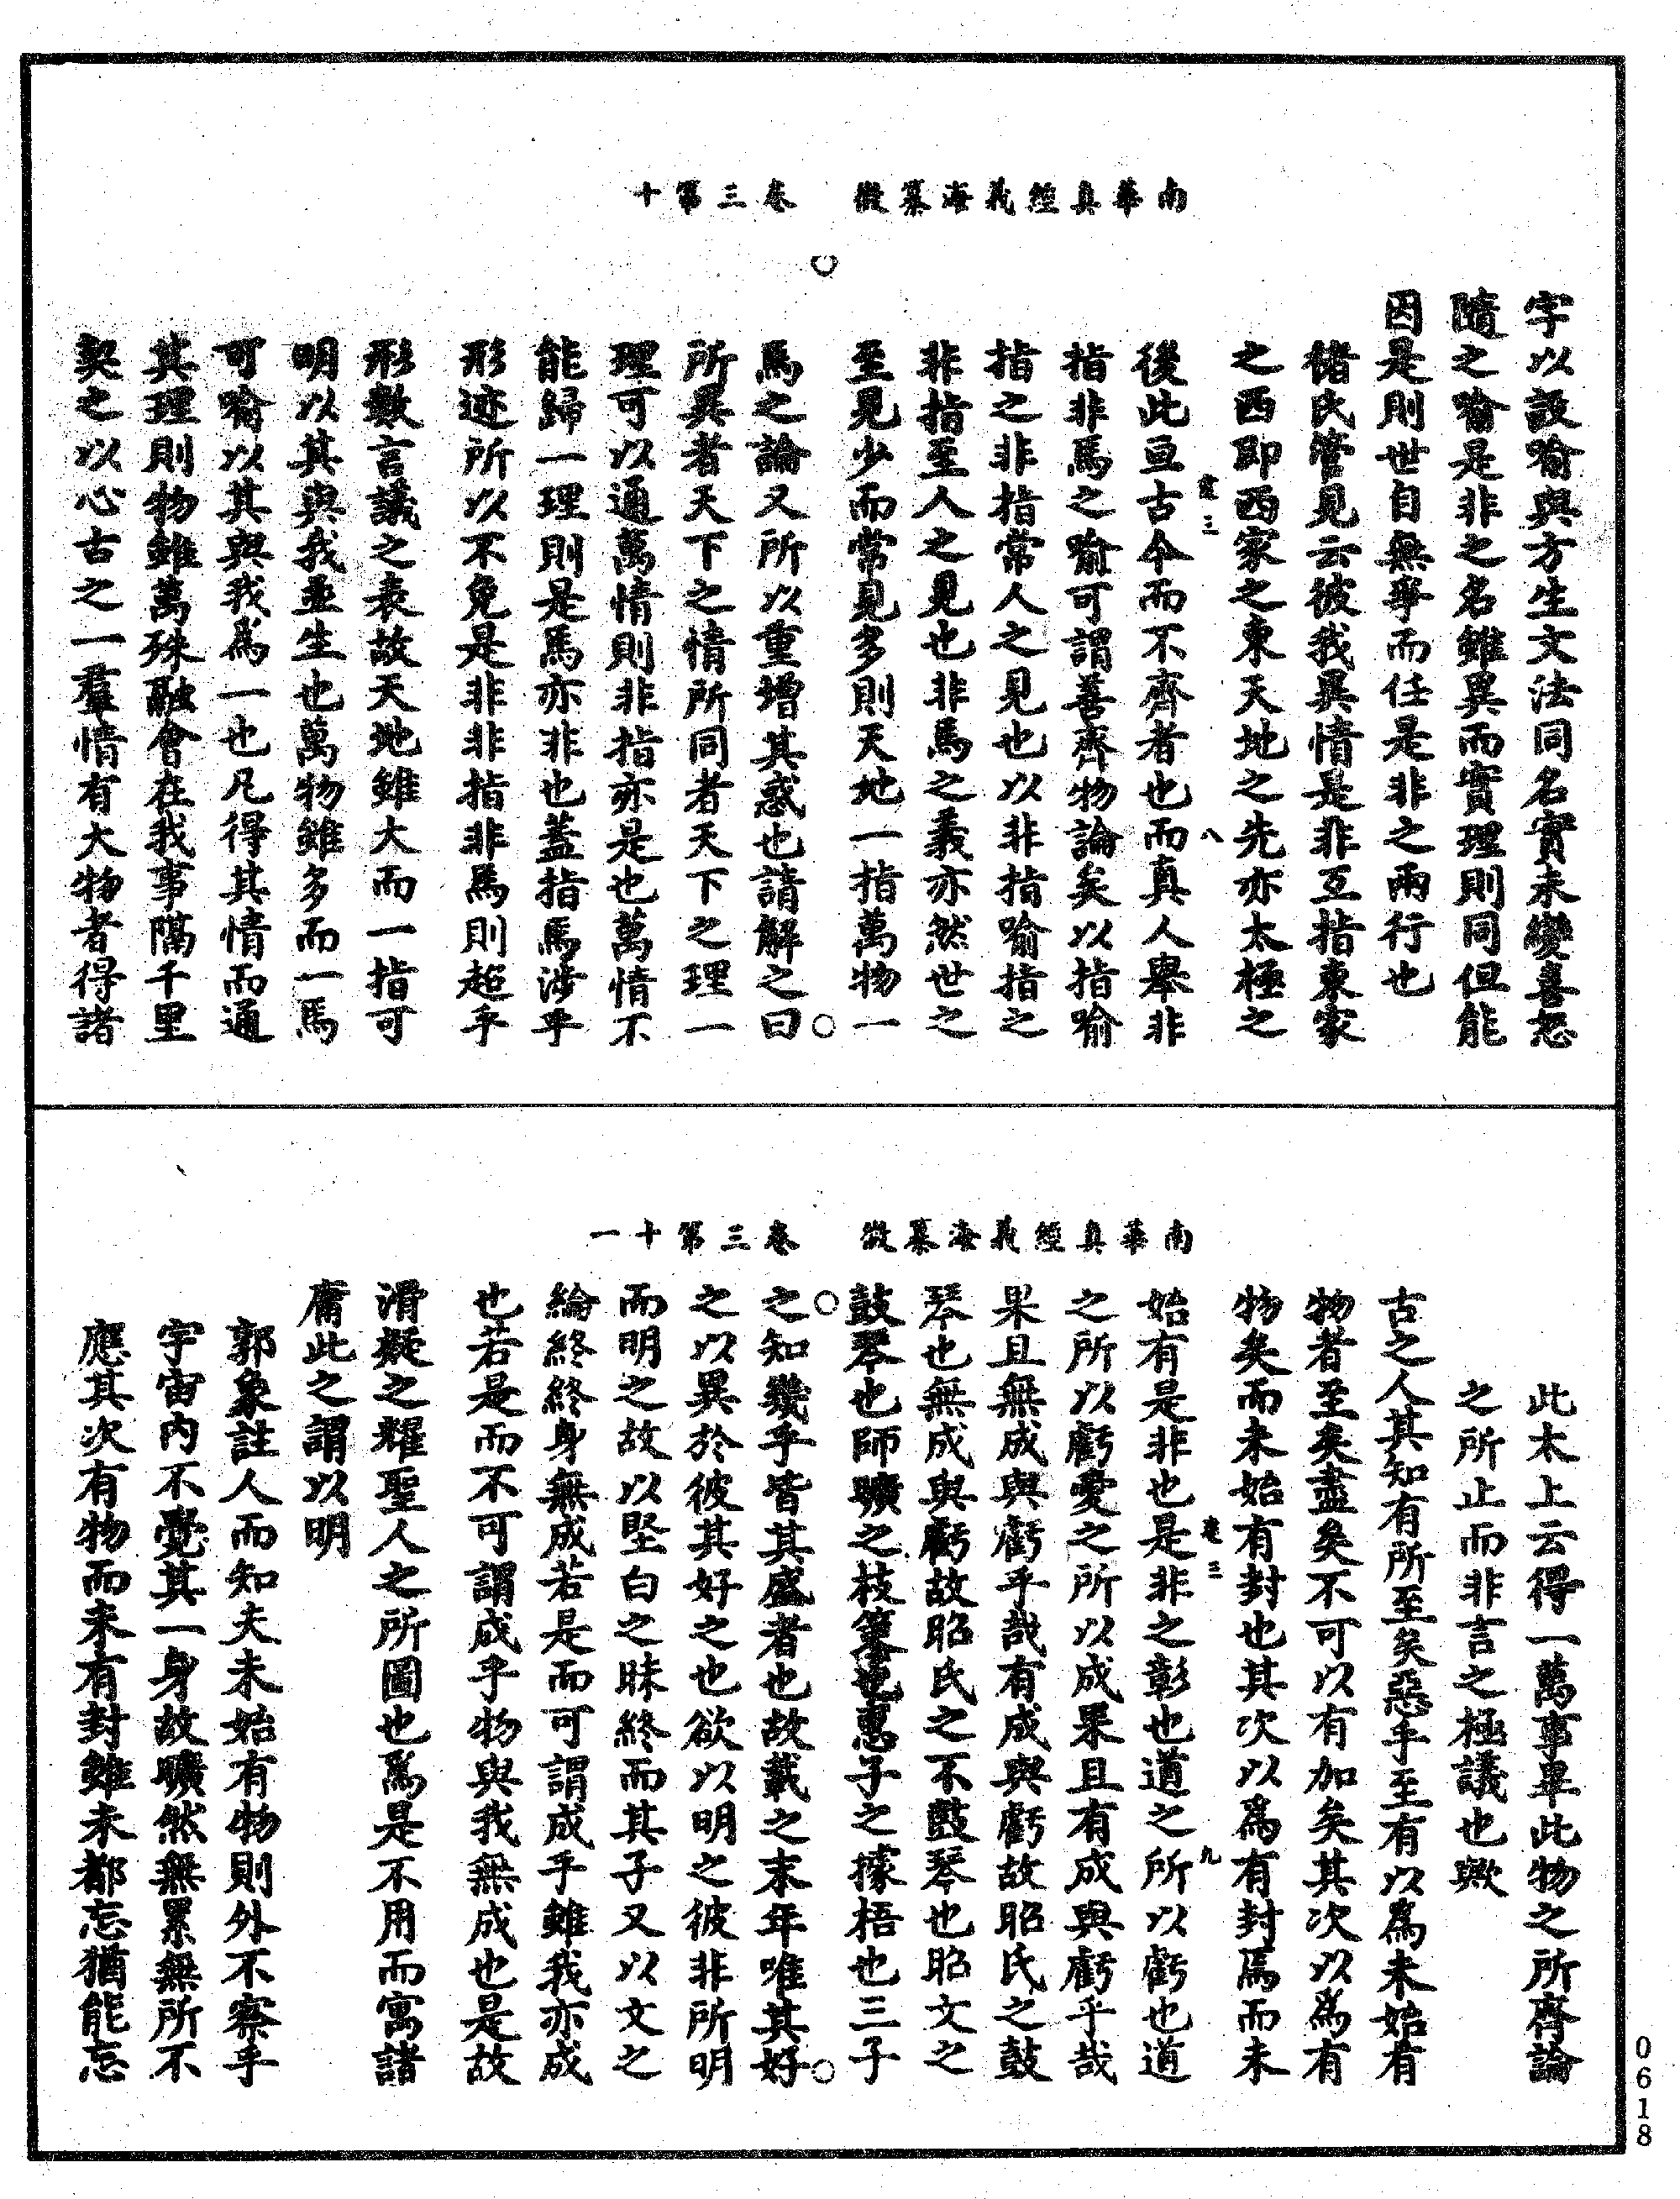 南華真經義海纂微　卷三第十
字以設喻與方生文法同名實未變喜怒
隨之喻是非之名雖異而實理則同但能
因是則世自無爭而任是非之兩行也
褚氏管見云彼我異情是非互指東家
之西即西家之東天地之先亦太極之
後此亘古今而不齊者也而真人舉非
指非馬之喻可謂善齊物論矣以指喻
指之非指常人之見也以非指喻指之
非指至人之見也非馬之義亦然世之
至見少而常見多則天地一指萬物一
馬之論又所以重增其惑也請解之曰
所異者天下之情所同者天下之理一
理可以通萬情則非指亦是也萬情不
能歸一理則是馬亦非也蓋指馬涉乎
形迹所以不免是非非指非馬則超乎
形數言議之表故天地雖大而一指可
明以其與我並生也萬物雖多而一馬
可喻以其與我為一也凡得其情而通
其理則物雖萬殊融會在我事隔千里
契之以心古之一羣情有大物者得諸
八
南華真經義海纂微　卷三第十一
此太上云得一萬事畢此物之所齊論
之所止而非言之極議也歟
古之人其知有所至矣惡乎至有以為未始有
物者至矣盡矣不可以有加矣其次以為有
物矣而未始有封也其次以為有封焉而未
始有是非也是非之彰也道之所以虧也道
之所以虧愛之所以成果且有成與虧乎哉
果且無成與虧乎哉有成與虧故昭氏之鼓
琴也無成與虧故昭氏之不鼓琴也昭文之
鼓琴也師曠之枝策也惠子之據梧也三子
之知幾乎皆其盛者也故載之末年唯其好
之以異於彼其好之也欲以明之彼非所明
而明之故以堅白之昧終而其子又以文之
綸終終身無成若是而可謂成乎雖我亦成
也若是而不可謂成乎物與我無成也是故
滑疑之耀聖人之所圖也為是不用而寓諸
庸此之謂以明
郭象註人而知夫未始有物則外不察乎
宇宙內不覺其一身故曠然無累無所不
應其次有物而未有封雖未都忘猶能忘
九
0618